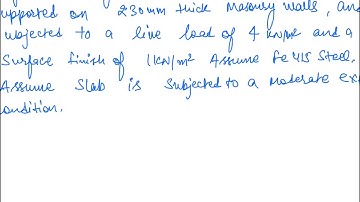 supported on 230mm thick Masonry walls, and
subjected to a live load of 4 kN/m² and a
Surface finish of 1kN/m² Assume Fe 415 Steel.
Assume Slab is Subjected to a Moderate ex
condition.